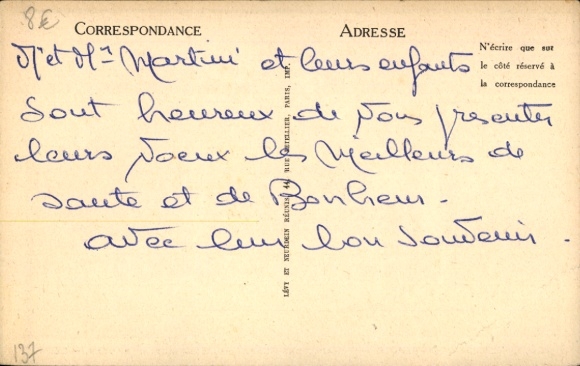 8€
CORRESPONDANCE
ADRESSE
N'écrire que sur
le côté réservé à
la correspondance
Mr et Me Martini et leurs enfants
sont heureux de vous presenter
leurs voeux les meilleurs de
sante et de Bonheur.
avec leur bon souvenir.
LÉVY ET NEURDEIN RÉUNIS, 44, RUE LETELLIER, PARIS, IMP.
137